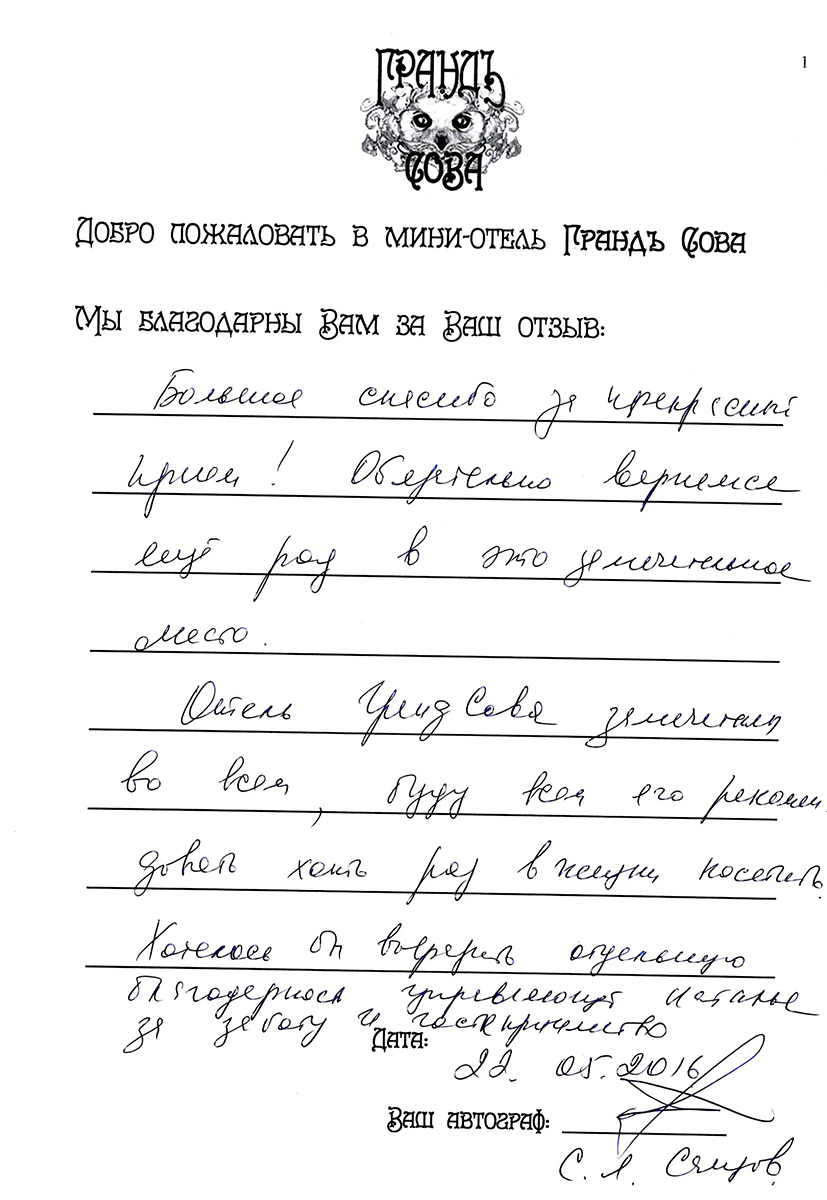 1
ГРАНДЪ
СОВА
Добро пожаловать в мини-отель Грандъ Сова
Мы благодарны Вам за Ваш отзыв:
Большое спасибо за прекрасный
прием! Обязательно вернемся
ещё раз в это замечательное
место.
Отель Гранд Сова замечателен
во всем, буду всем его рекомен
довать хоть раз в жизни посетить.
Хотелось бы выразить отдельную
благодарность управляющей Наталье
за заботу и гостеприимство
Дата:
22.05.2016
Ваш автограф:
С. А.